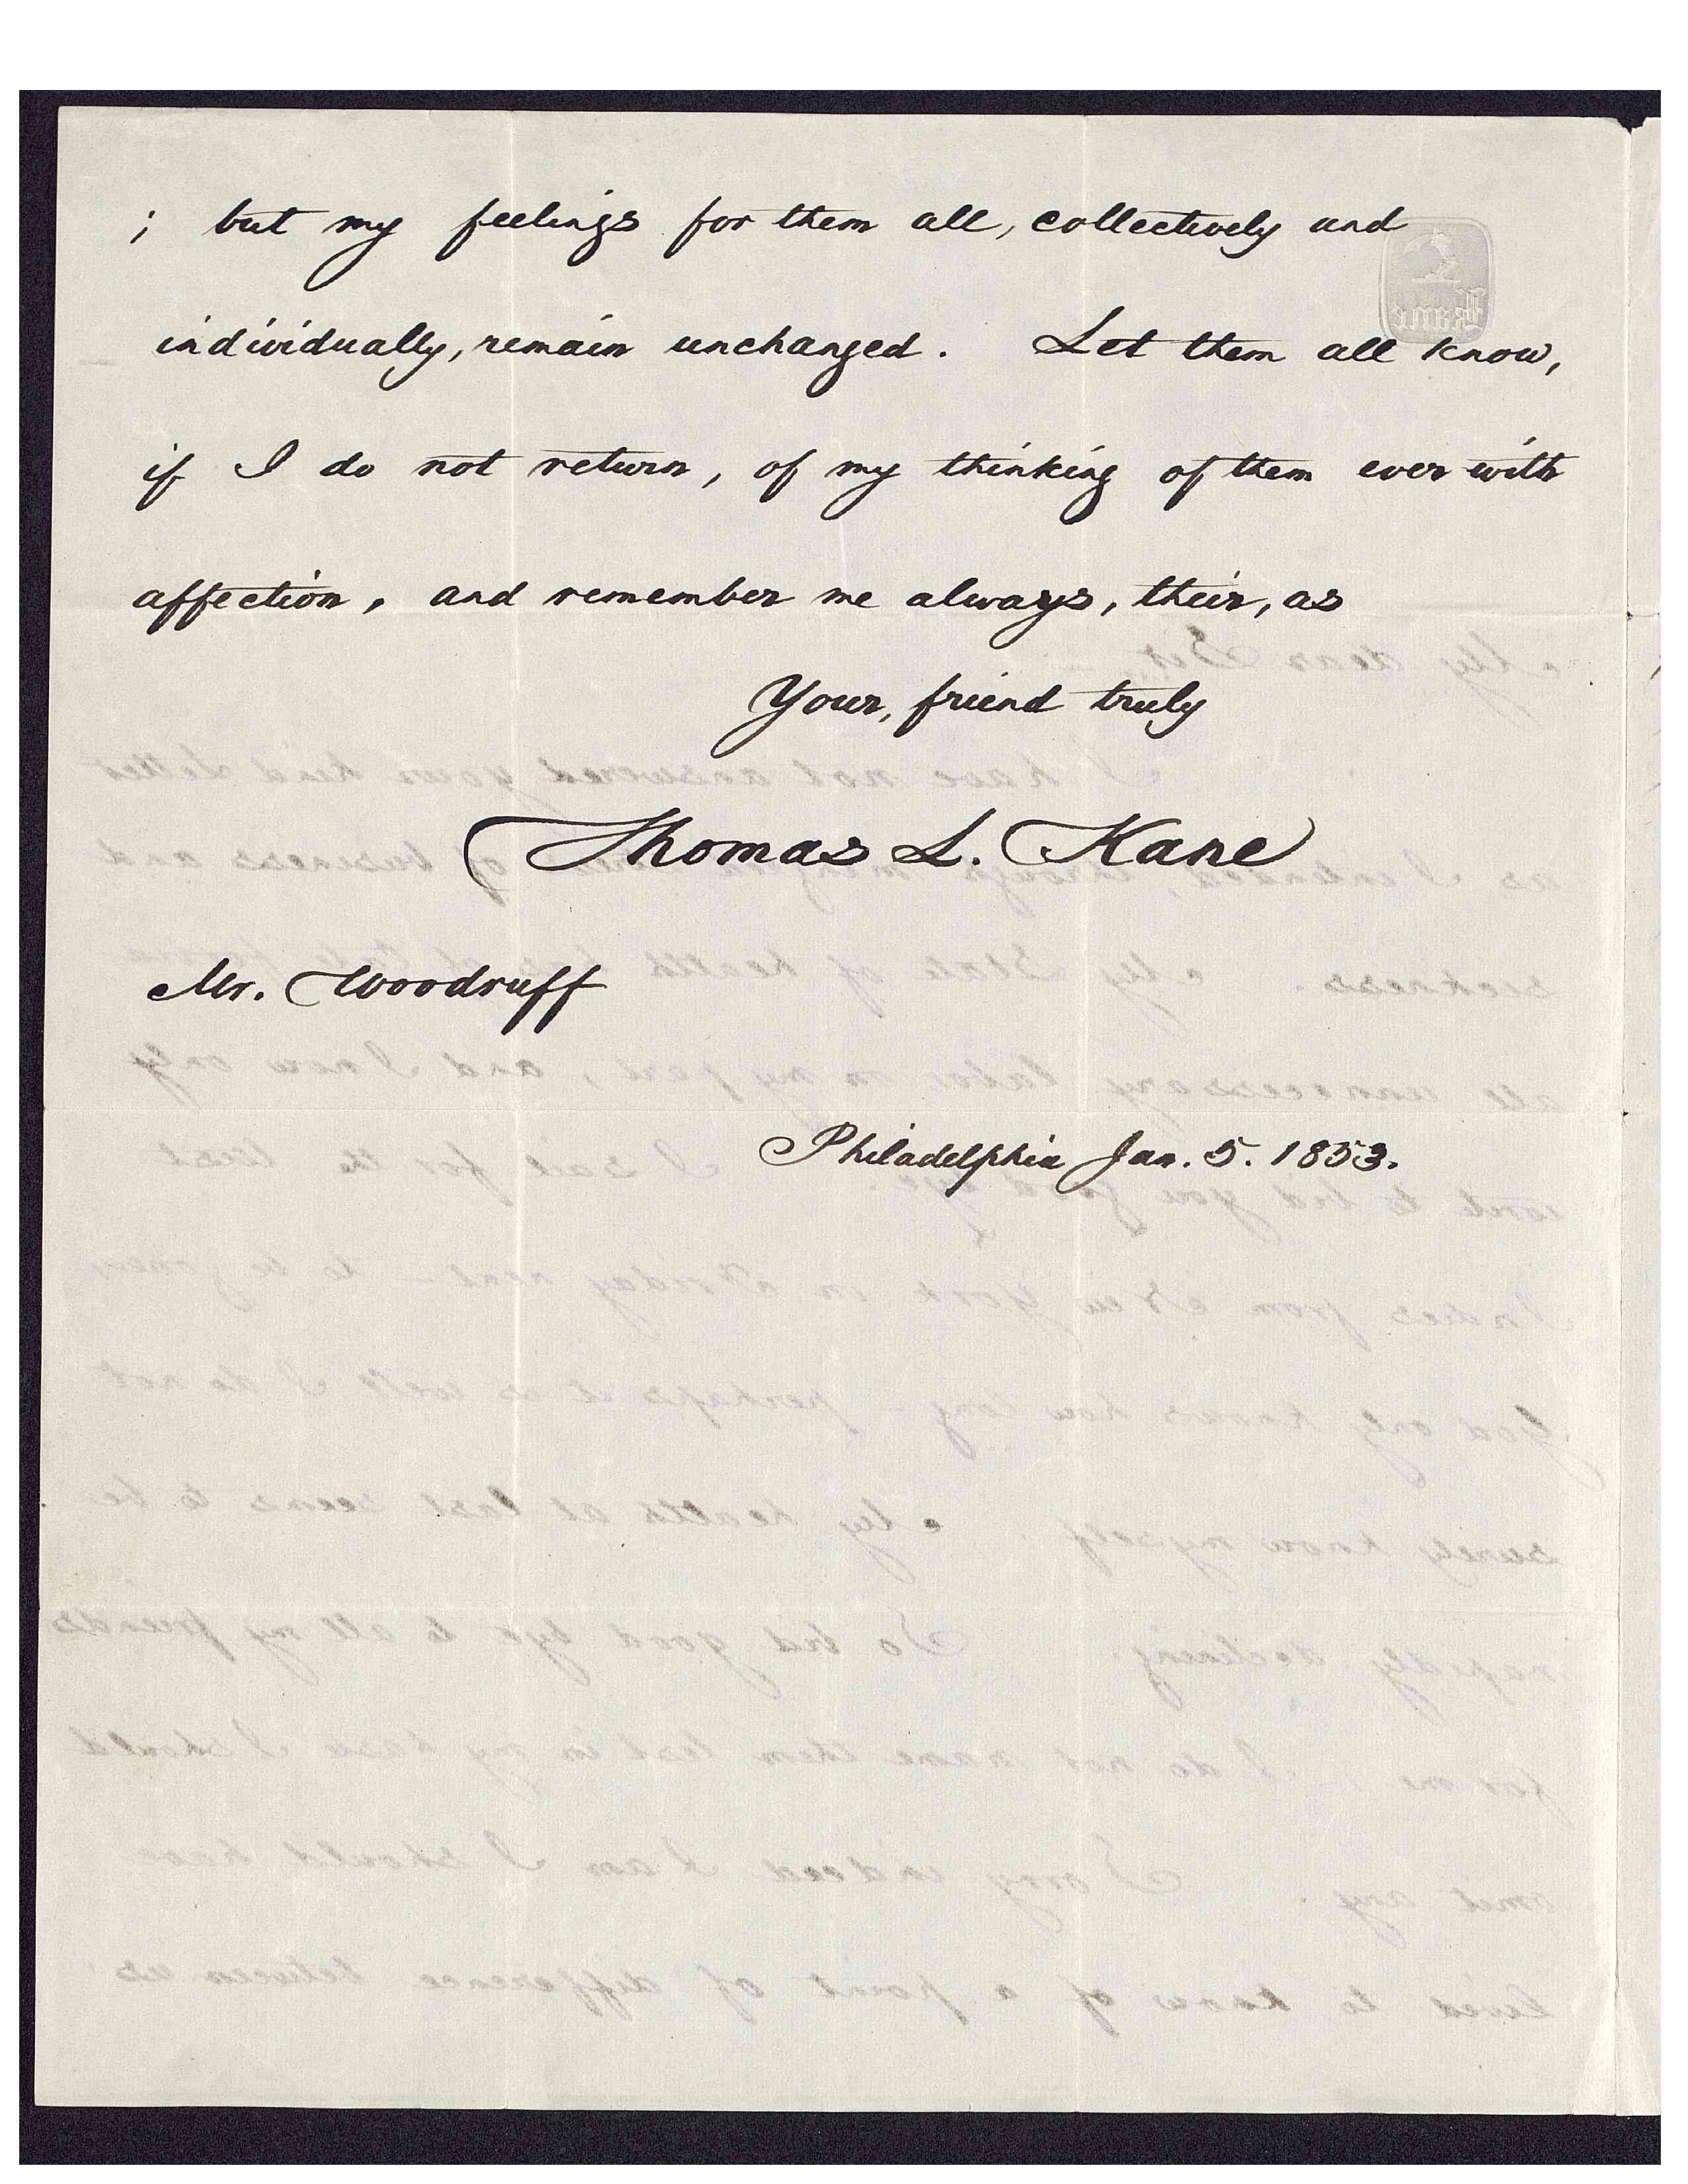 ; but my feelings for them all, collectively and
individually, remain unchanged. Let them all know,
if I do not return, of my thinking of them ever with
affection, and remember me always, their, as
Your, friend truly
Thomas L. Kane
Mr. Woodruff
Philadelphia Jan. 5. 1853.